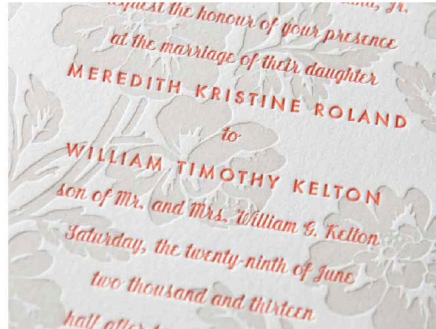 request the honour of your presence
at the marriage of their daughter
MEREDITH KRISTINE ROLAND
to
WILLIAM TIMOTHY KELTON
son of Mr. and Mrs. William G. Kelton
Saturday, the twenty-ninth of June
two thousand and thirteen
half after